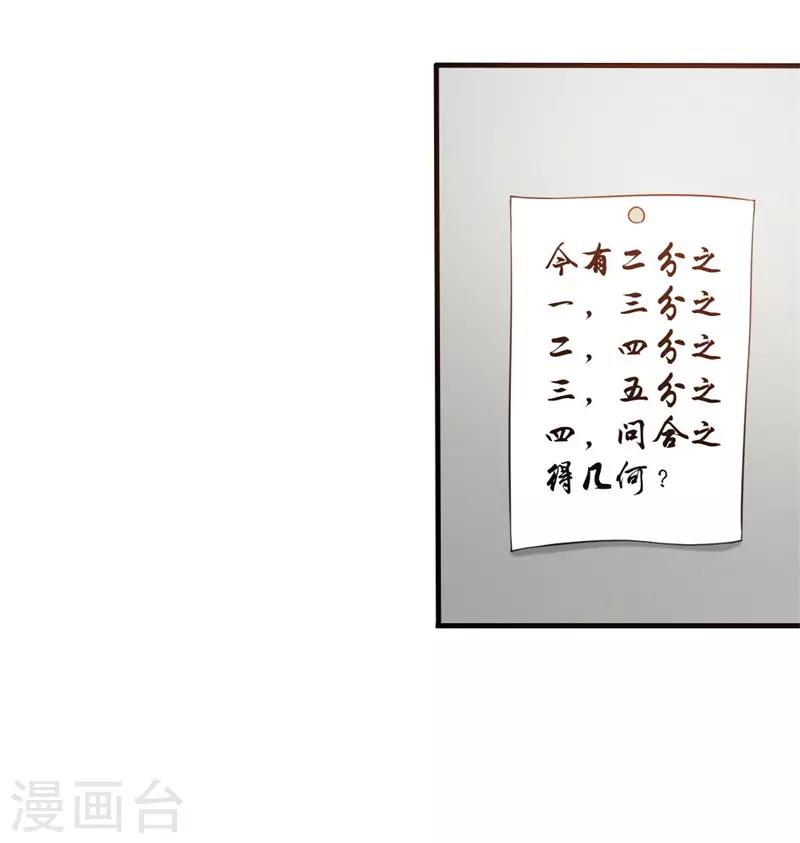 今有二分之
一，三分之
二，四分之
三，五分之
四，问合之
得几何？
漫画台